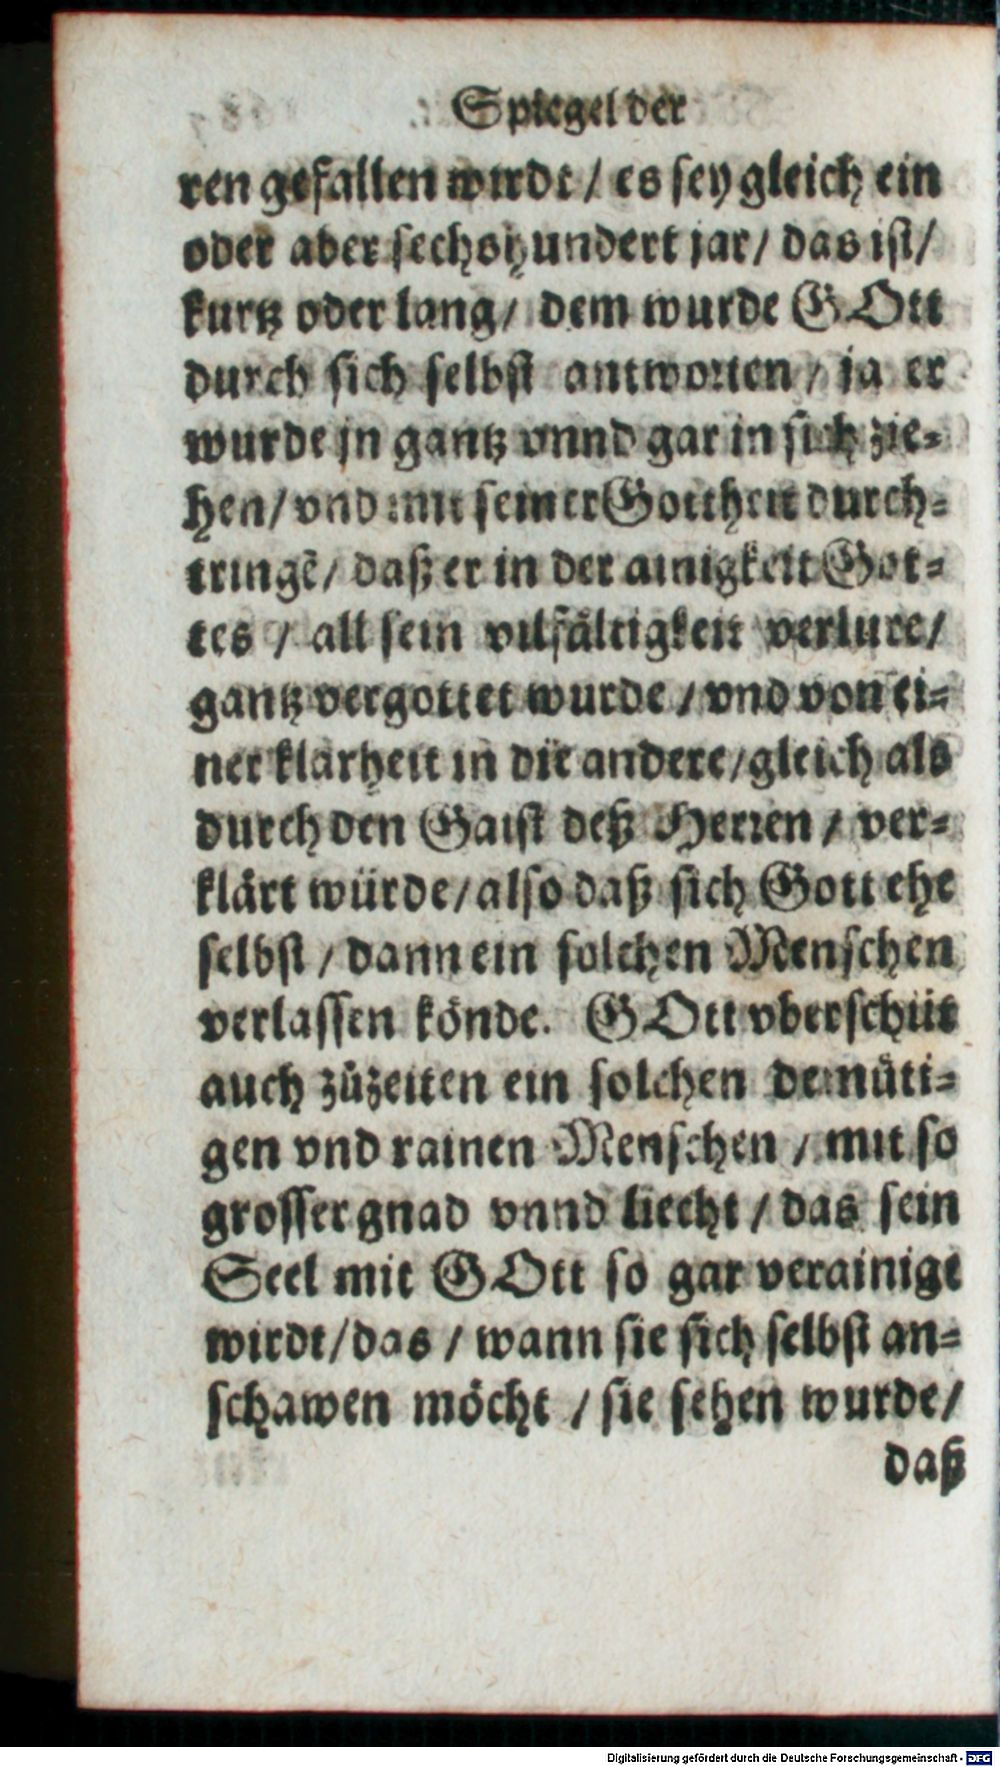 Spiegel der
ren gefallen wirdt / es sey gleich ein
oder aber sechshundert jar / das ist /
kurtz oder lang / dem wurde GOtt
durch sich selbst antworten / ja er
wurde jn gantz vnnd gar in sich zie-
hen / vnd mit seiner Gottheit durch-
tringē / daß er in der ainigkeit Got-
tes / all sein vilfältigkeit verlure /
gantz vergottet wurde / vnd von ei-
ner klarheit in die andere / gleich als
durch den Gaist deß Herren / ver-
klärt würde / also daß sich Gott ehe
selbst / dann ein solchen Menschen
verlassen könde. GOtt vberschüt
auch zůzeiten ein solchen demüti-
gen vnd rainen Menschen / mit so
grosser gnad vnnd liecht / das sein
Seel mit GOtt so gar verainigt
wirdt / das / wann sie sich selbst an-
schawen möcht / sie sehen wurde /
daß
Digitalisierung gefördert durch die Deutsche Forschungsgemeinschaft - DFG